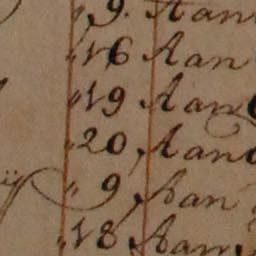 „ 9. Aan
„ 16 Aan
„ 19 Aan
„ 20, Aan
„ 9, Aan
„ 18 Aan